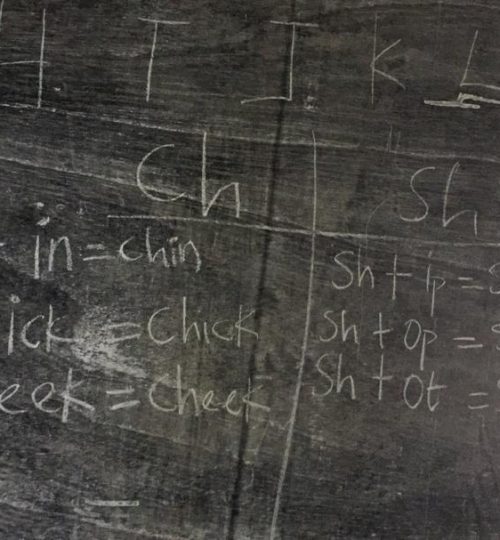 H I J K L
Ch Sh
in = chin Sh + ip =
ick = Chick Sh + op =
eek = Cheek Sh + ot =